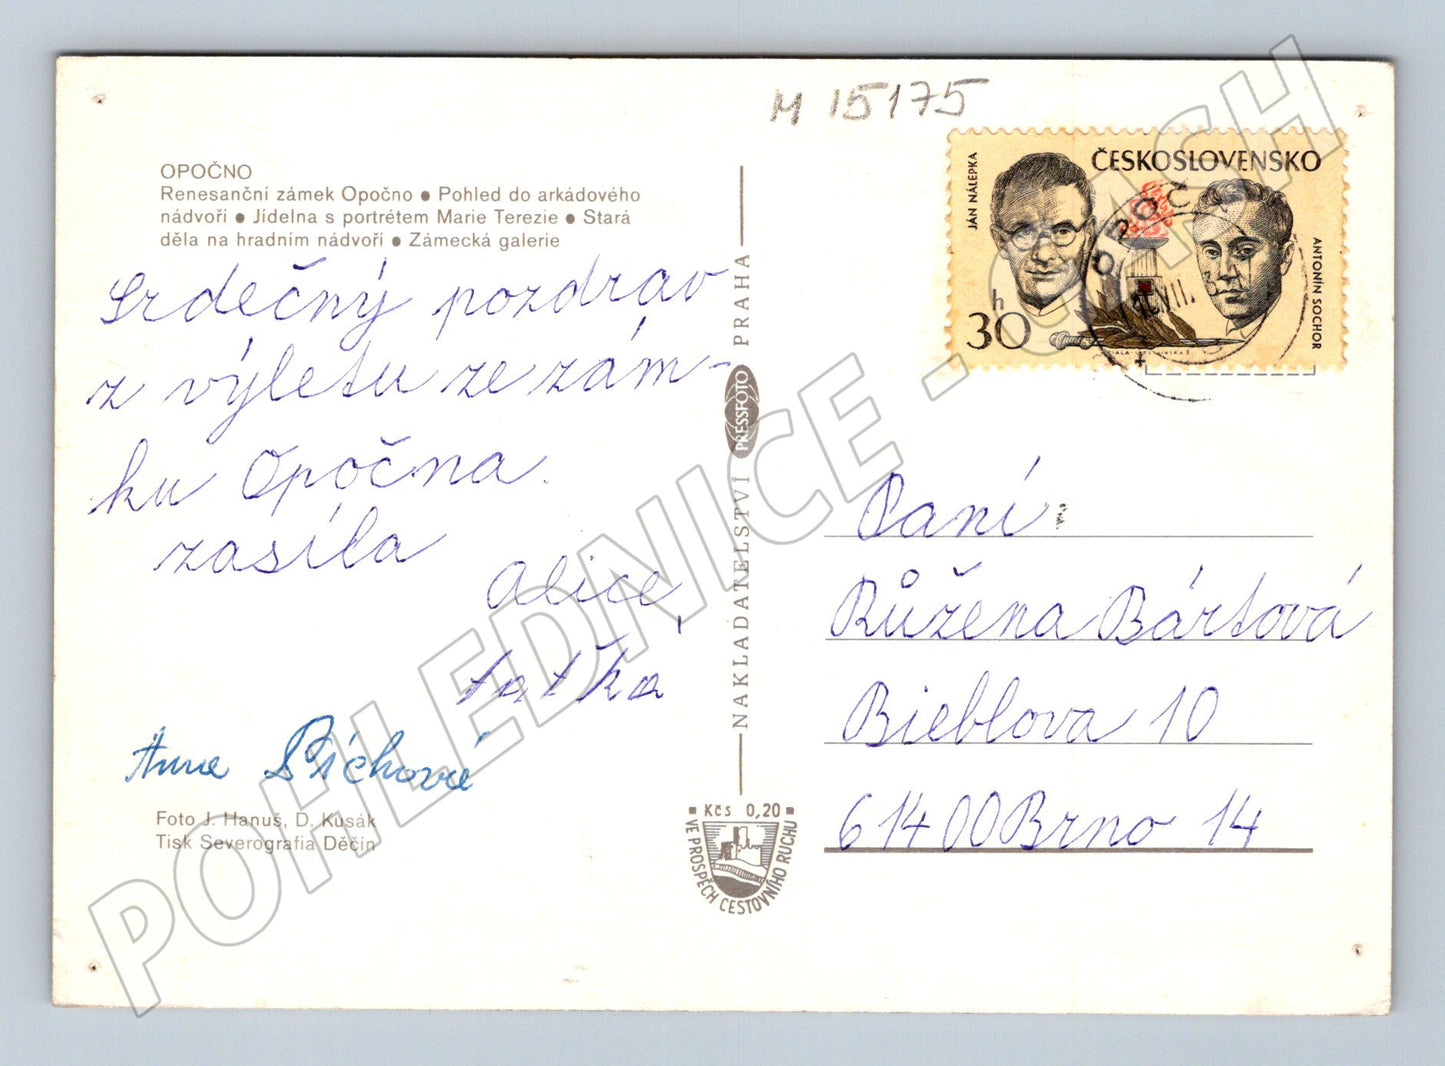 M 15175
OPOČNO
Renesanční zámek Opočno ● Pohled do arkádového
nádvoří ● Jídelna s portrétem Marie Terezie ● Stará
děla na hradním nádvoří ● Zámecká galerie
Srdečný pozdrav
z výletu ze zám-
ku Opočna
zasíla
Alice,
taťka
Anna
Foto J. Hanuš, D. Kusák
Tisk Severografia Děčín
NAKLADATELSTVÍ PRESSFOTO PRAHA
Kčs 0,20
VE PROSPĚCH CESTOVNÍHO RUCHU
ČESKOSLOVENSKO
JÁN NÁLEPKA
ANTONÍN SOCHOR
30 h
OPOČN
Paní
Růžena Bártová
Bieblova 10
61400 Brno 14
POHLEDNICE - CASH